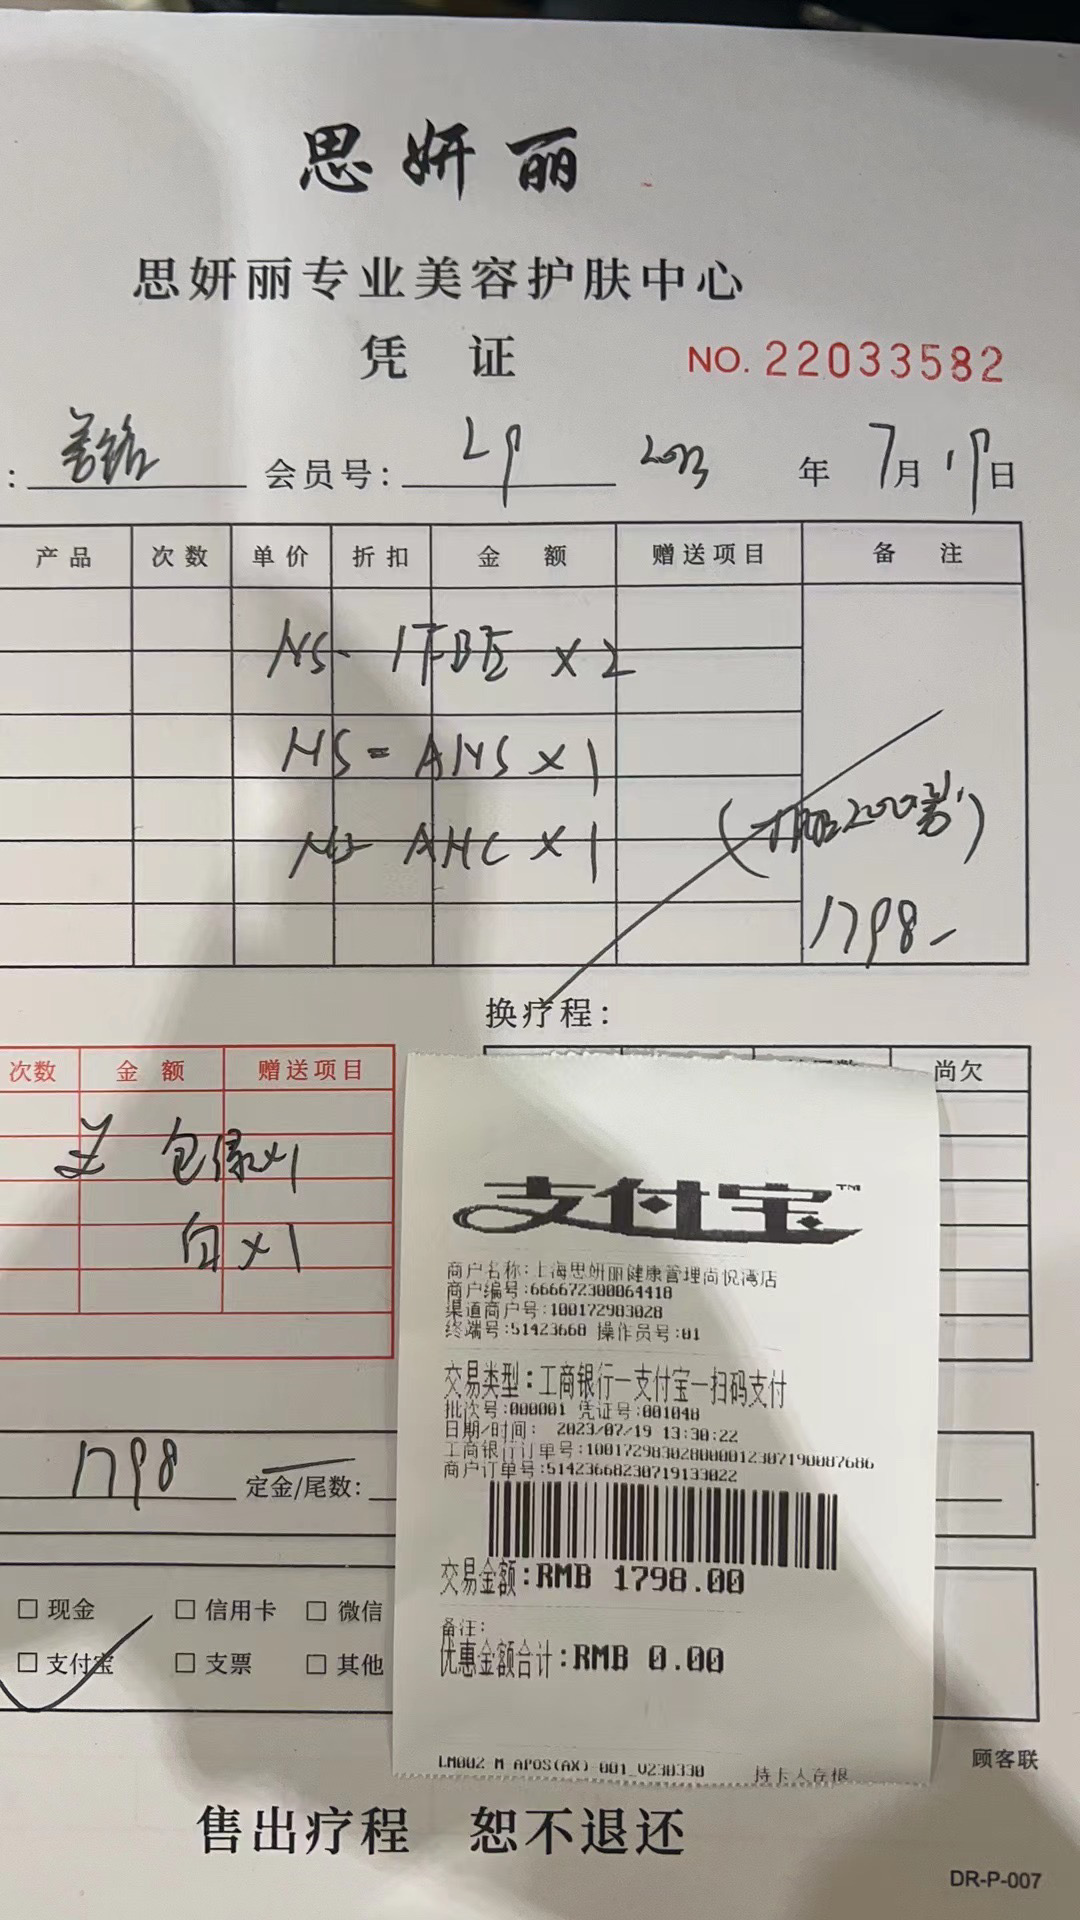 思妍丽
思妍丽专业美容护肤中心
凭 证
NO. 22033582
: 会员号: 2023 年 7月19日
产品 次数 单价 折扣 金额 赠送项目 备注
×2
NS= ANS ×1
AHC ×1
1798-
换疗程:
次数 金额 赠送项目
尚欠
包绿×1
白×1
支付宝™
商户名称:上海思妍丽健康管理尚悦湾店
商户编号:666672300064418
渠道商户号:100172983028
终端号:51423668 操作员号:01
交易类型:工商银行—支付宝—扫码支付
批次号:000001 凭证号:001048
日期/时间: 2023/07/19 13:30:22
工商银行订单号:10017298302800001230719008​7686
商户订单号:51423668230719133022
交易金额:RMB 1798.00
备注:
优惠金额合计:RMB 0.00
LM002 M APOS(AX)-001_V230330 持卡人存根
1798 定金/尾数:
□ 现金 □ 信用卡 □ 微信
□ 支付宝 □ 支票 □ 其他
顾客联
售出疗程 恕不退还
DR-P-007